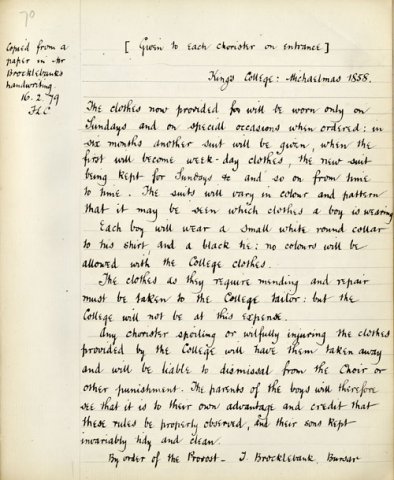 70
Copied from a
paper in Mr
Brocklebank's
handwriting.
16.2.79
F.L.C
[Given to each chorister on entrance]
King's College: Michaelmas 1858.
The clothes now provided for will be worn only on
Sundays and on special occasions when ordered: in
six months another suit will be given, when the
first will become week-day clothes, the new suit
being kept for Sundays &c and so on from time
to time. The suits will vary in colour and pattern
that it may be seen which clothes a boy is wearing
Each boy will wear a small white round collar
to his shirt, and a black tie: no colours will be
allowed with the College clothes.
The clothes as they require mending and repair
must be taken to the College tailor: but the
College will not be at this expense.
Any chorister spoiling or wilfully injuring the clothes
provided by the College will have them taken away
and will be liable to dismissal from the Choir or
other punishment. The parents of the boys will therefore
see that it is to their own advantage and credit that
these rules be properly observed, and their sons kept
invariably tidy and clean.
By order of the Provost - J. Brocklebank, Bursar